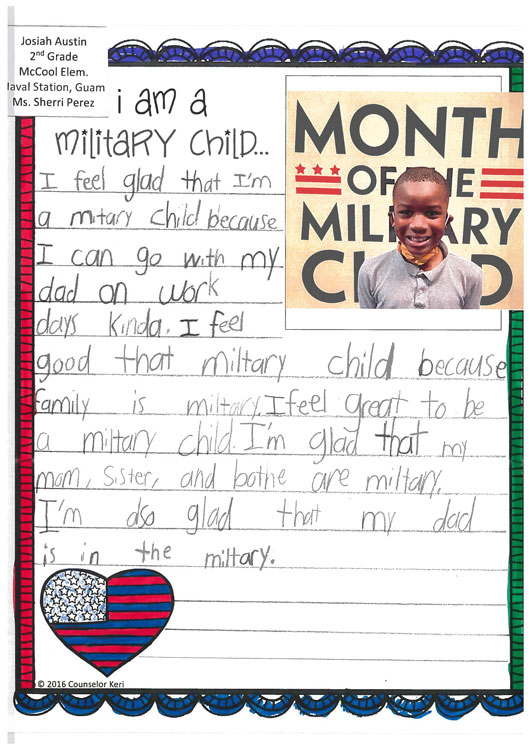 Josiah Austin
2nd Grade
McCool Elem.
aval Station, Guam
Ms. Sherri Perez
i am a
militaRy child...
MONTH
OF THE
MILITARY
CHILD
I feel glad that I'm
a mitary child because
I can go with my
dad on work
days kinda. I feel
good that miltary child because
family is miltary. I feel great to be
a miltary child. I'm glad that my
mom, sister, and bothe are miltary.
I'm dso glad that my dad
is in the miltary.
© 2016 Counselor Keri